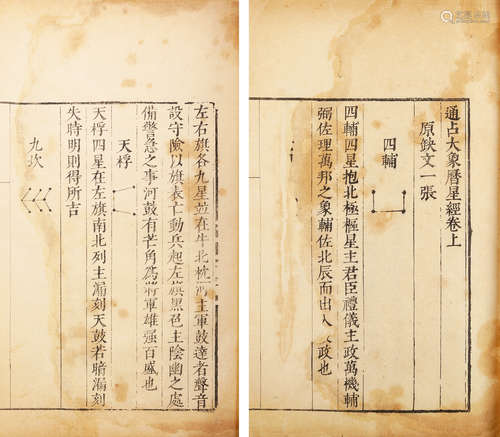 通占大象曆星經卷上
原缺文一張
四輔
四輔四星抱北極樞星主君臣禮儀主政萬機輔
弼佐理萬邦之象輔佐北辰而出入大政也
左右旗各九星並在牛北枕河主軍鼓達者聲音
設守險以旗表亡動兵起左旗黑色主陰幽之處
備警急之事河鼓有芒角為將軍雄强百盛也
天桴
天桴四星在左旗南北列主漏刻天鼓若暗漏刻
失時明則得所吉
九坎